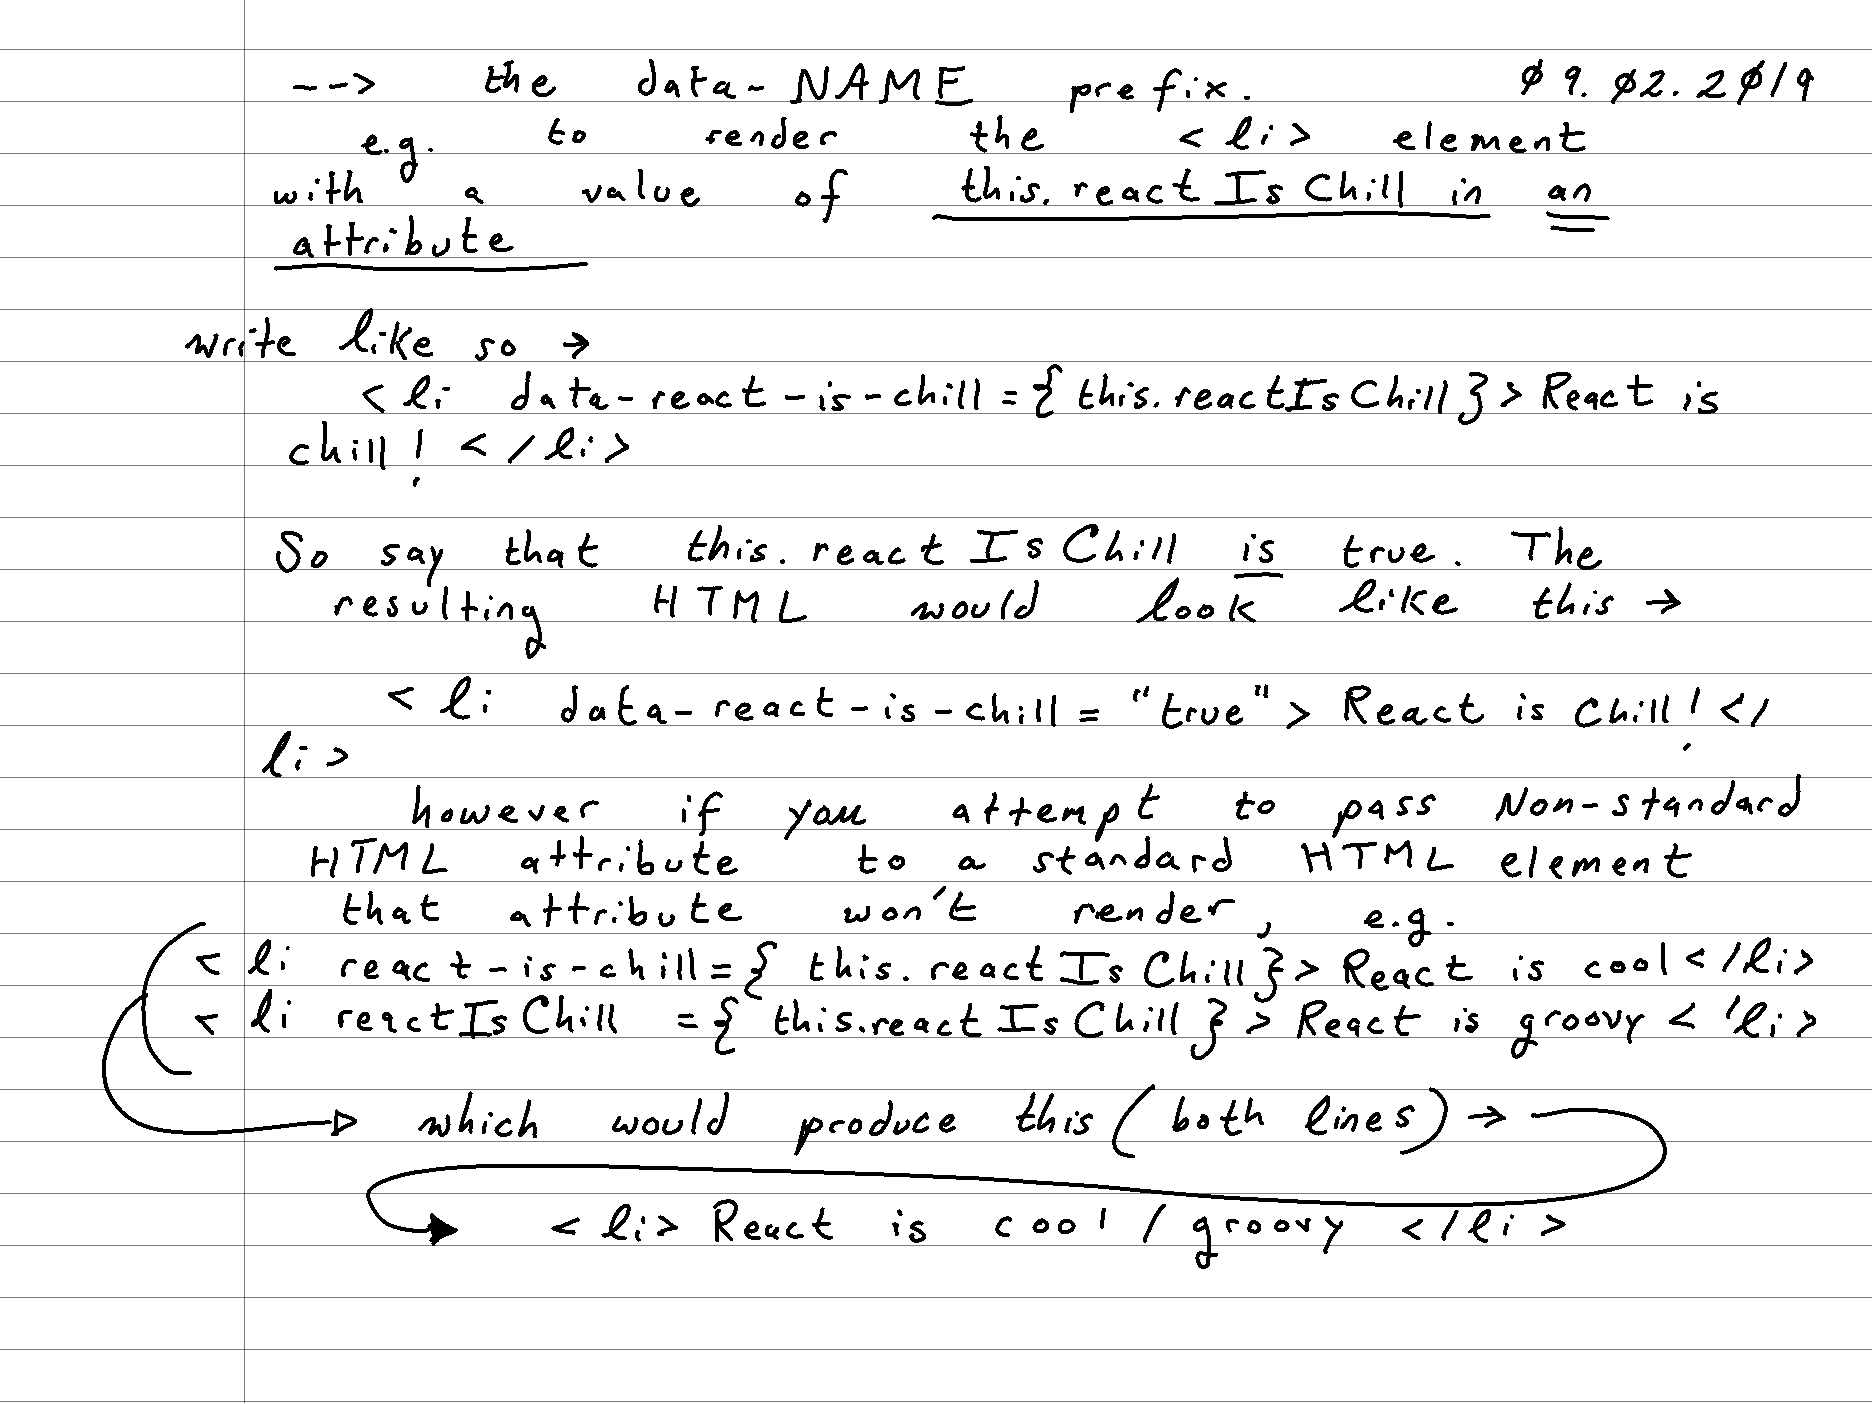 --> the data-NAME prefix. 09.02.2019
e.g. to render the <li> element
with a value of this.reactIsChill in an
attribute
write like so →
<li data-react-is-chill={this.reactIsChill}> React is
chill! </li>
So say that this.reactIsChill is true. The
resulting HTML would look like this →
<li data-react-is-chill = "true"> React is Chill! </
li>
however if you attempt to pass Non-standard
HTML attribute to a standard HTML element
that attribute won't render, e.g.
<li react-is-chill={this.reactIsChill}> React is cool </li>
<li reactIsChill = {this.reactIsChill}> React is groovy <'li>
which would produce this (both lines) →
<li> React is cool / groovy </li>